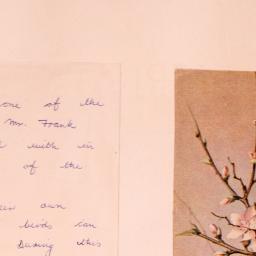 one of the
Mr. Frank
with in
of the
own
birds can
During this